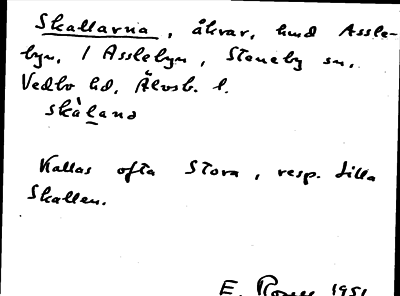 Skallarna, åkrar, hmd Assle-
byn, 1 Asslebyn, Steneby sn,
Vedbo hd, Älvsb. l.
skàlana
Kallas ofta Stora, resp. Lilla
Skallen.
E. 1951